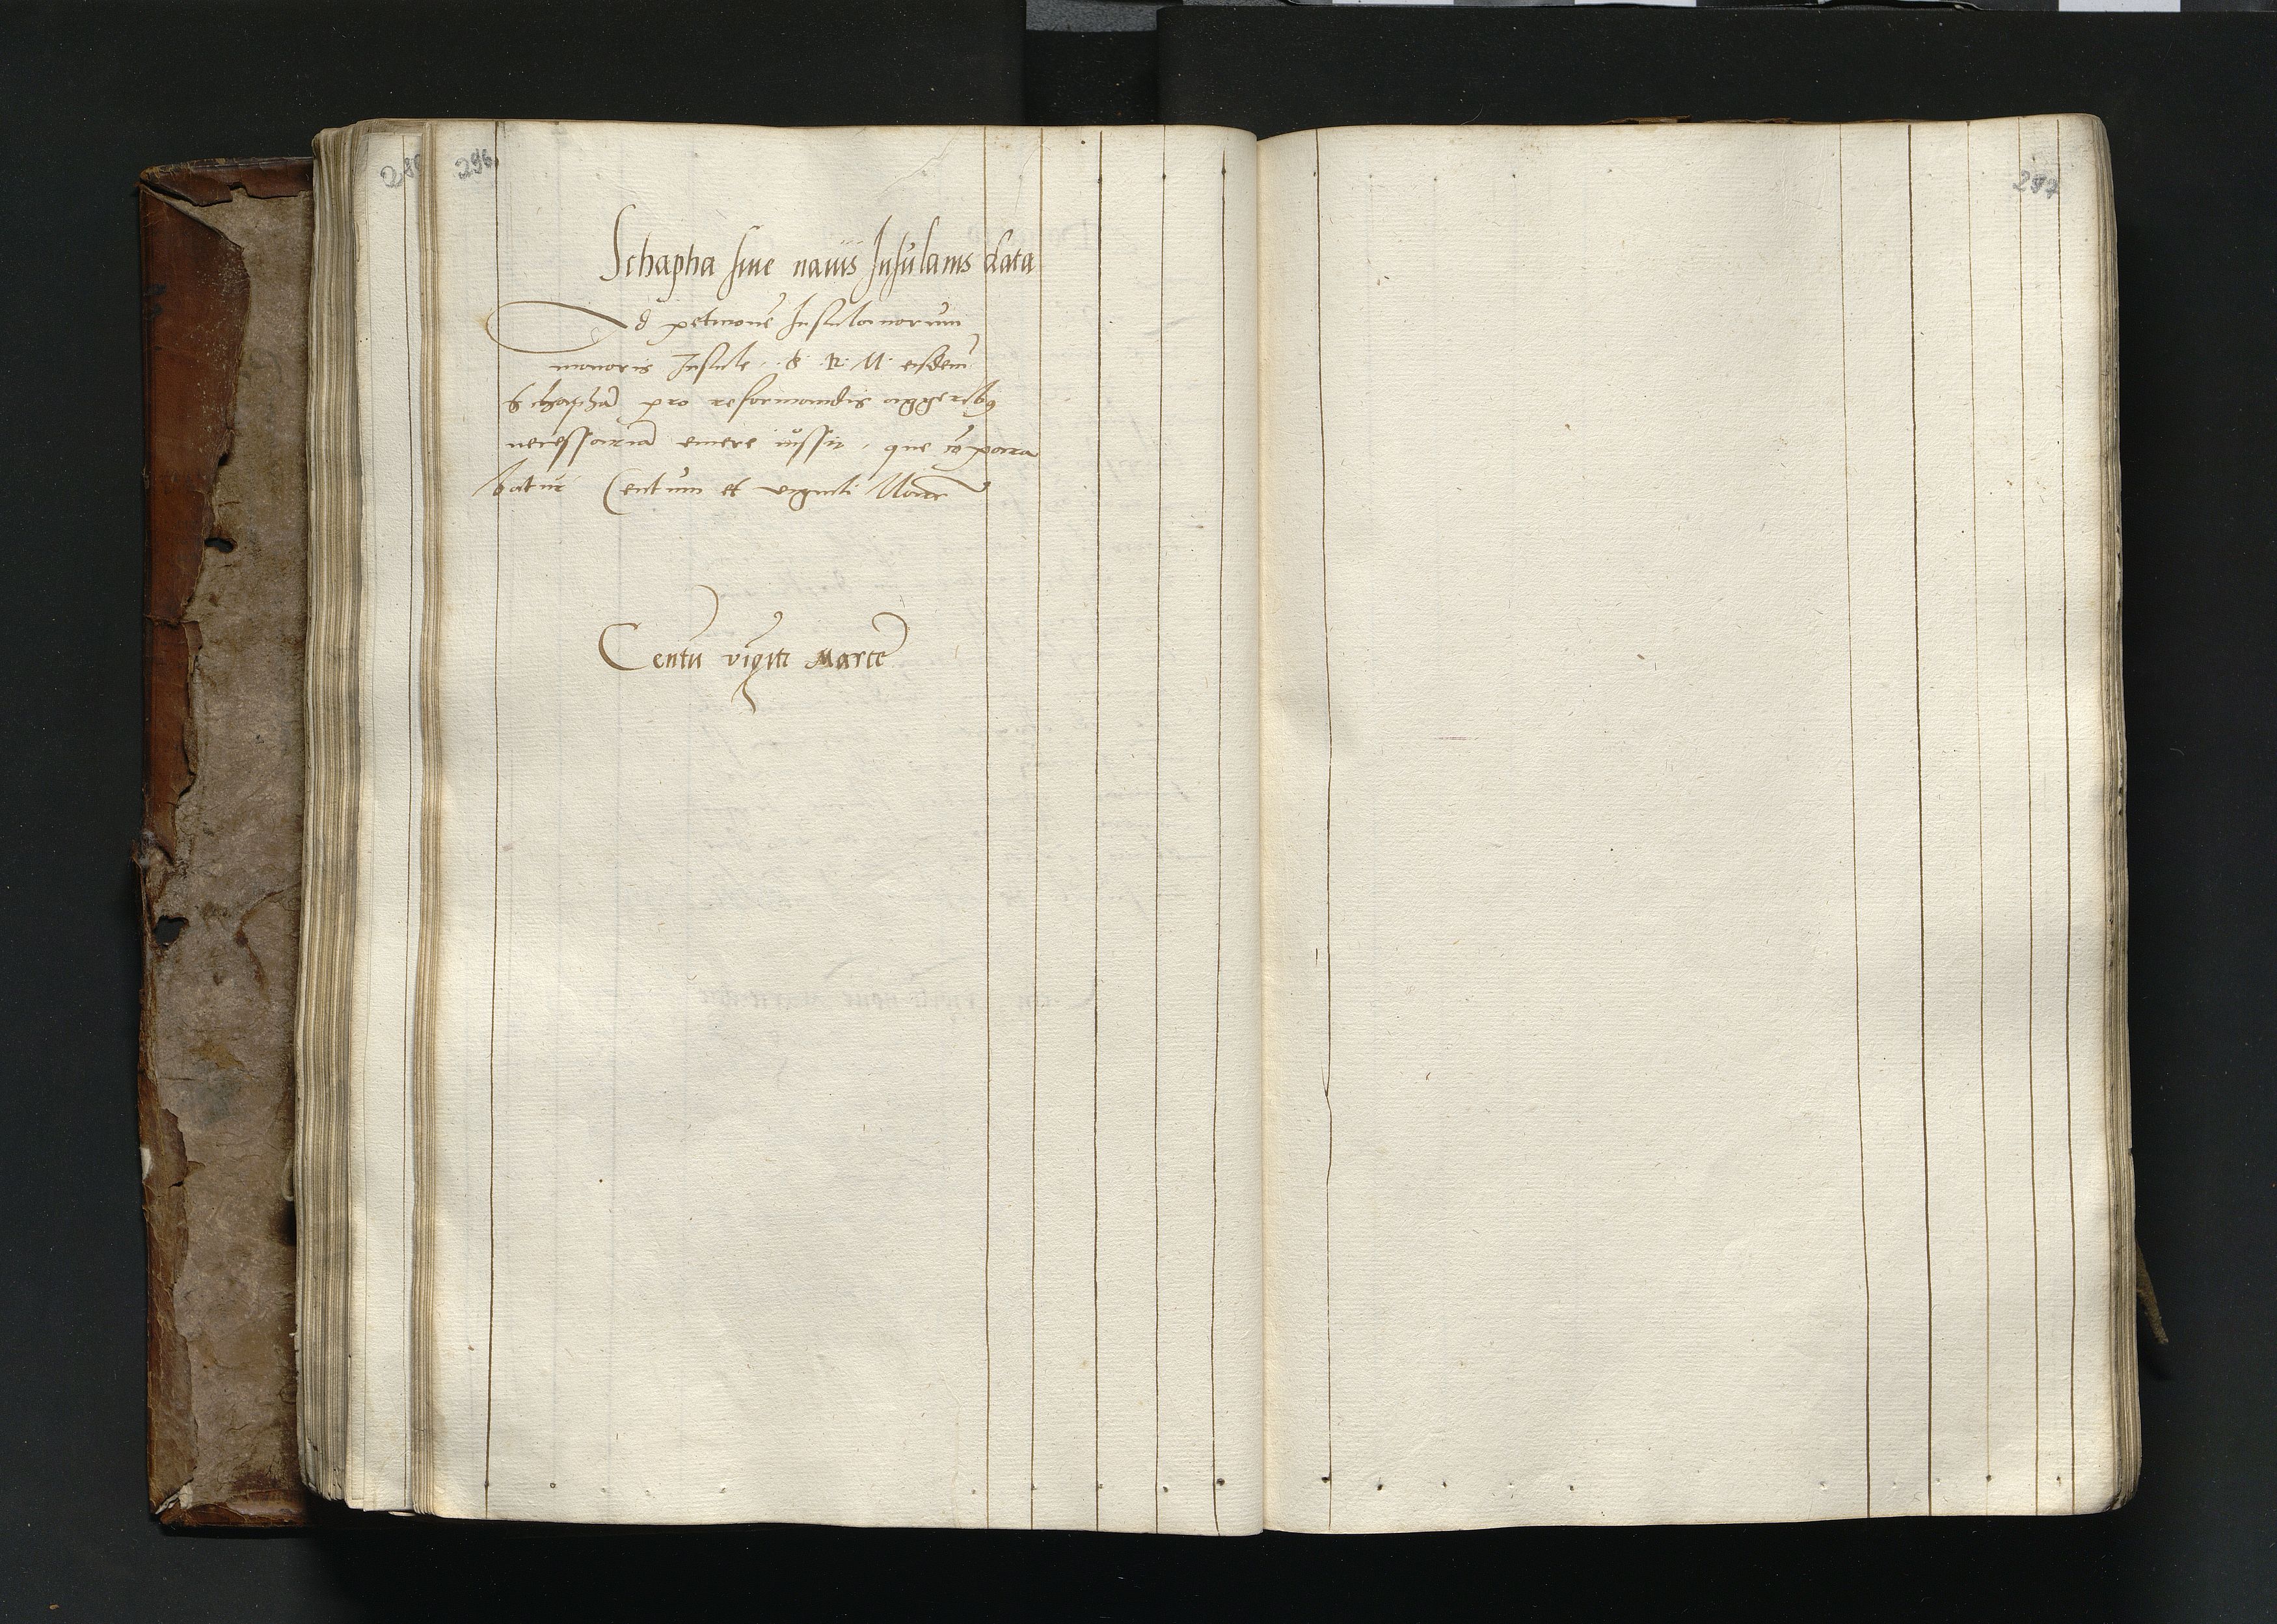 296
Schapha siue nauis Insulanis data
Ad petitionē Insulanorum
minoris Insule . S. R. M. eisdem
Schaphā pro reformandis aggeribꝫ
necessariā emere iussit, que cōpara
batur Centum et viginti Marc
Centū vigīti Marce
297